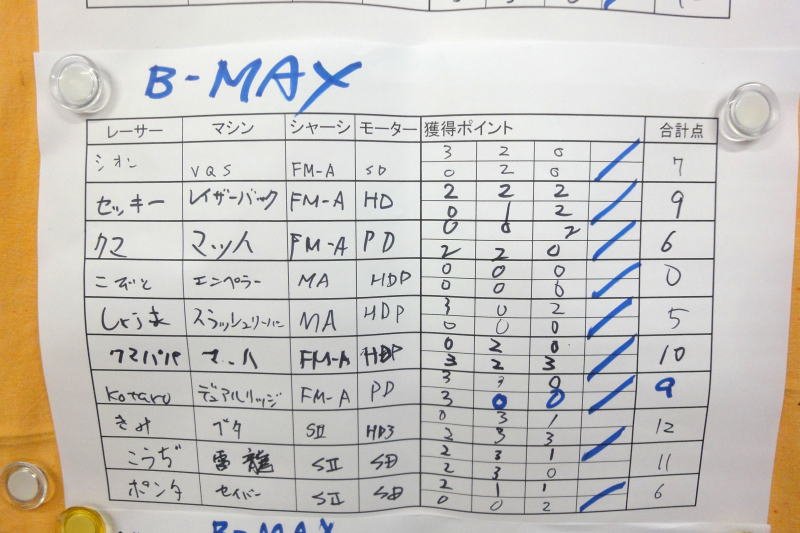 B-MAX
レーサー マシン シャーシ モーター 獲得ポイント 合計点
シオン VQS FM-A SD 3 2 0 7
0 2 0
セッキー レイザーバック FM-A HD 2 2 2 9
0 1 2
クマ マッハ FM-A PD 0 0 2 6
2 2 0
エンペラー MA HDP 0 0 0 0
0 0 0
しょうま スラッシュリーパー MA HDP 3 0 2 5
0 0 0
クマパパ マッハ FM-A HDP 0 2 0 10
3 2 3
Kotaro デュアルリッジ FM-A PD 3 3 0 9
3 0 0
きみ ブタ SII HD3 0 3 1 12
2 3 3
こうぢ 雷龍 SII SD 2 3 1 11
2 3 0
ポンタ セイバー SII SD 2 1 1 6
0 0 2
B-MAX